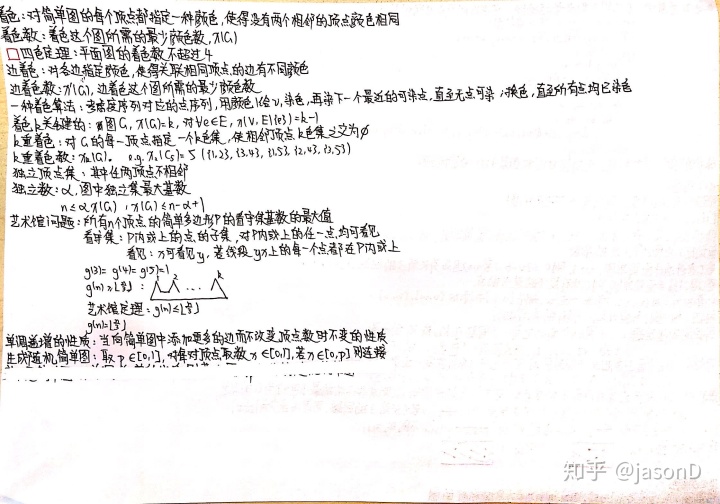 着色：对简单图的每个顶点都指定一种颜色，使得没有两个相邻的顶点颜色相同
着色数：着色这个图所需的最少颜色数，χ(G)
□四色定理：平面图的着色数不超过4
边着色：对各边指定颜色，使得关联相同顶点的边有不同颜色
边着色数：χ'(G)，边着色这个图所需的最少颜色数
一种着色算法：考虑度序列对应的点序列，用颜色1给v，染色，再染下一个最近的可染点，直至无点可染；换色，直至所有点均已染色
着色k关键的：图G，χ(G)=k，对∀e∈E，χ(V,E\{e})=k-1
k重着色：对G的每一顶点指定一个k色集，使相邻顶点k色集之交为∅
k重着色数：χk(G)。 e.g. χ2(C5)=5 ({1,2}, {3,4}, {1,5}, {2,4}, {3,5})
独立顶点集：其中任两顶点不相邻
独立数：α，图中独立集最大基数
n≤αχ(G)，χ(G)≤n-α+1
艺术馆问题：所有n个顶点的简单多边形P的看守集基数的最大值
看守集：P内或上的点的子集，对P内或上的任一点，均可看见
看见：x可看见y，若线段yx上的每一个点都在P内或上
g(3)=g(4)=g(5)=1
g(n)≥⌊n/3⌋： 1 2 ... k
艺术馆定理：g(n)≤⌊n/3⌋
g(n)=⌊n/3⌋
单调递增的性质：当向简单图中添加更多的边而不改变顶点数时不变的性质
生成随机简单图：取p∈[0,1]，对每对顶点取数x∈[0,1]，若x∈[0,p]则连接
知乎 @jasonD